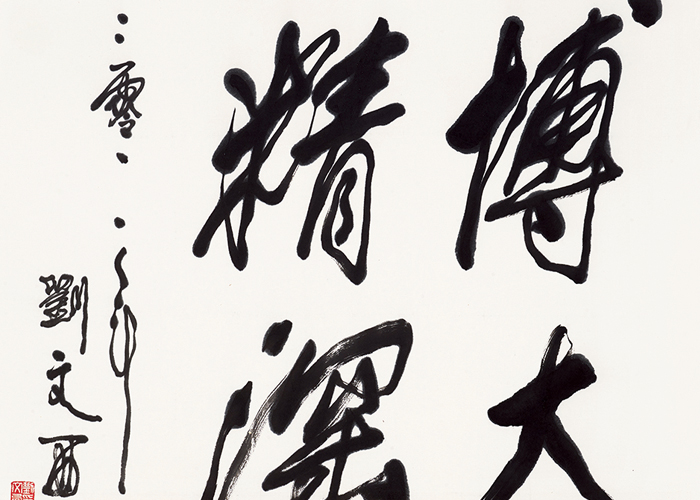 博大
精深
二零一二年
劉文西